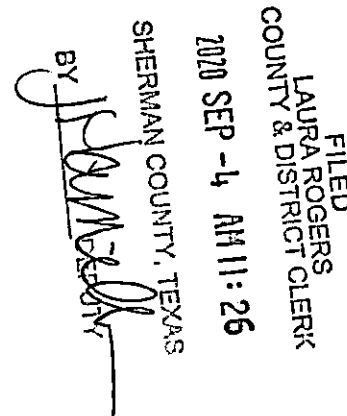 FILED
LAURA ROGERS
COUNTY & DISTRICT CLERK
2020 SEP -4 AM 11: 26
SHERMAN COUNTY, TEXAS
BY
DEPUTY